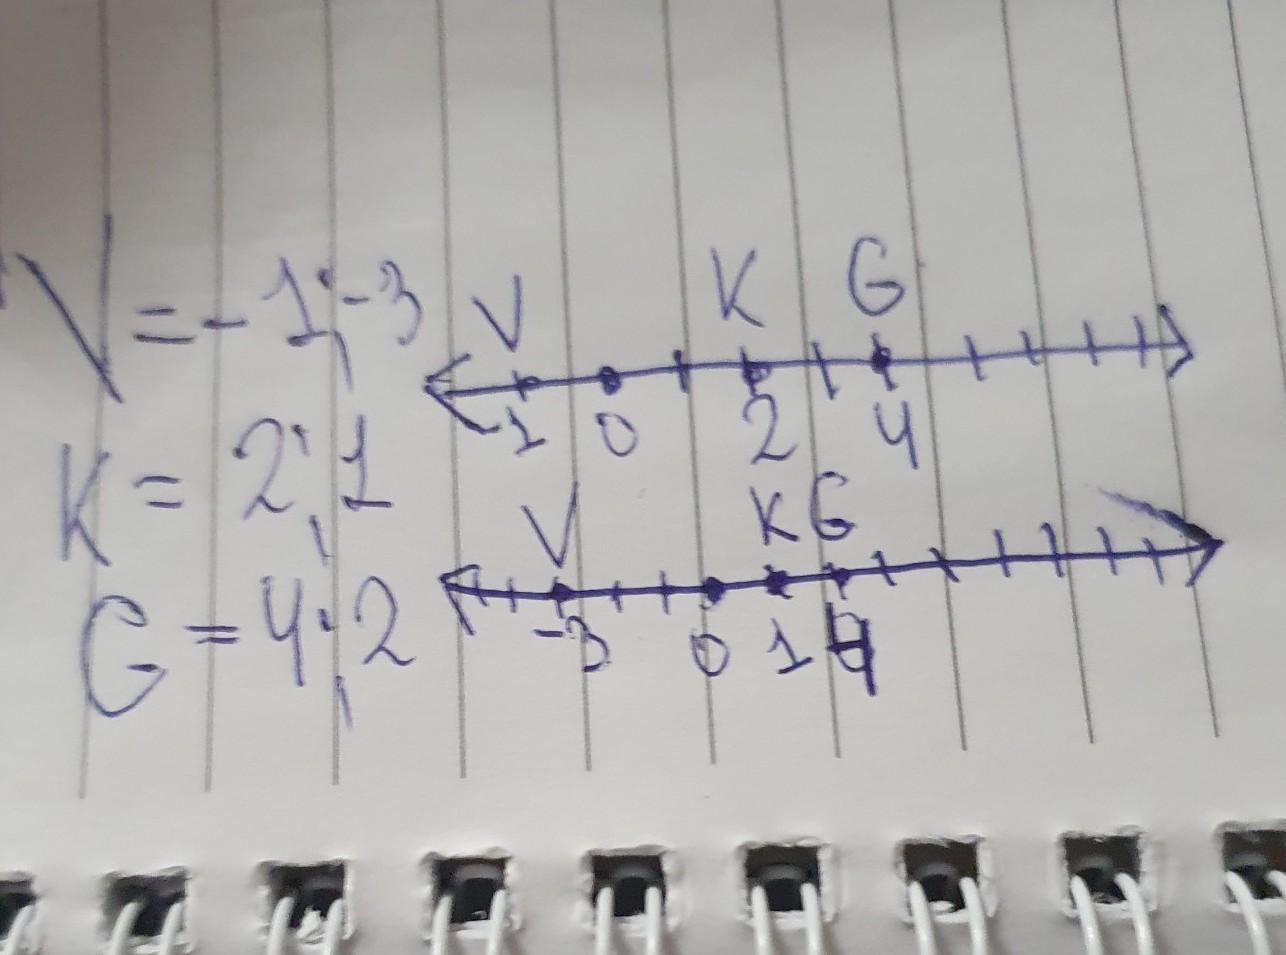 V = -1; -3
V K G
-1 0 2 4
K = 2; 1
V K G
-3 0 1
G = 4; 2